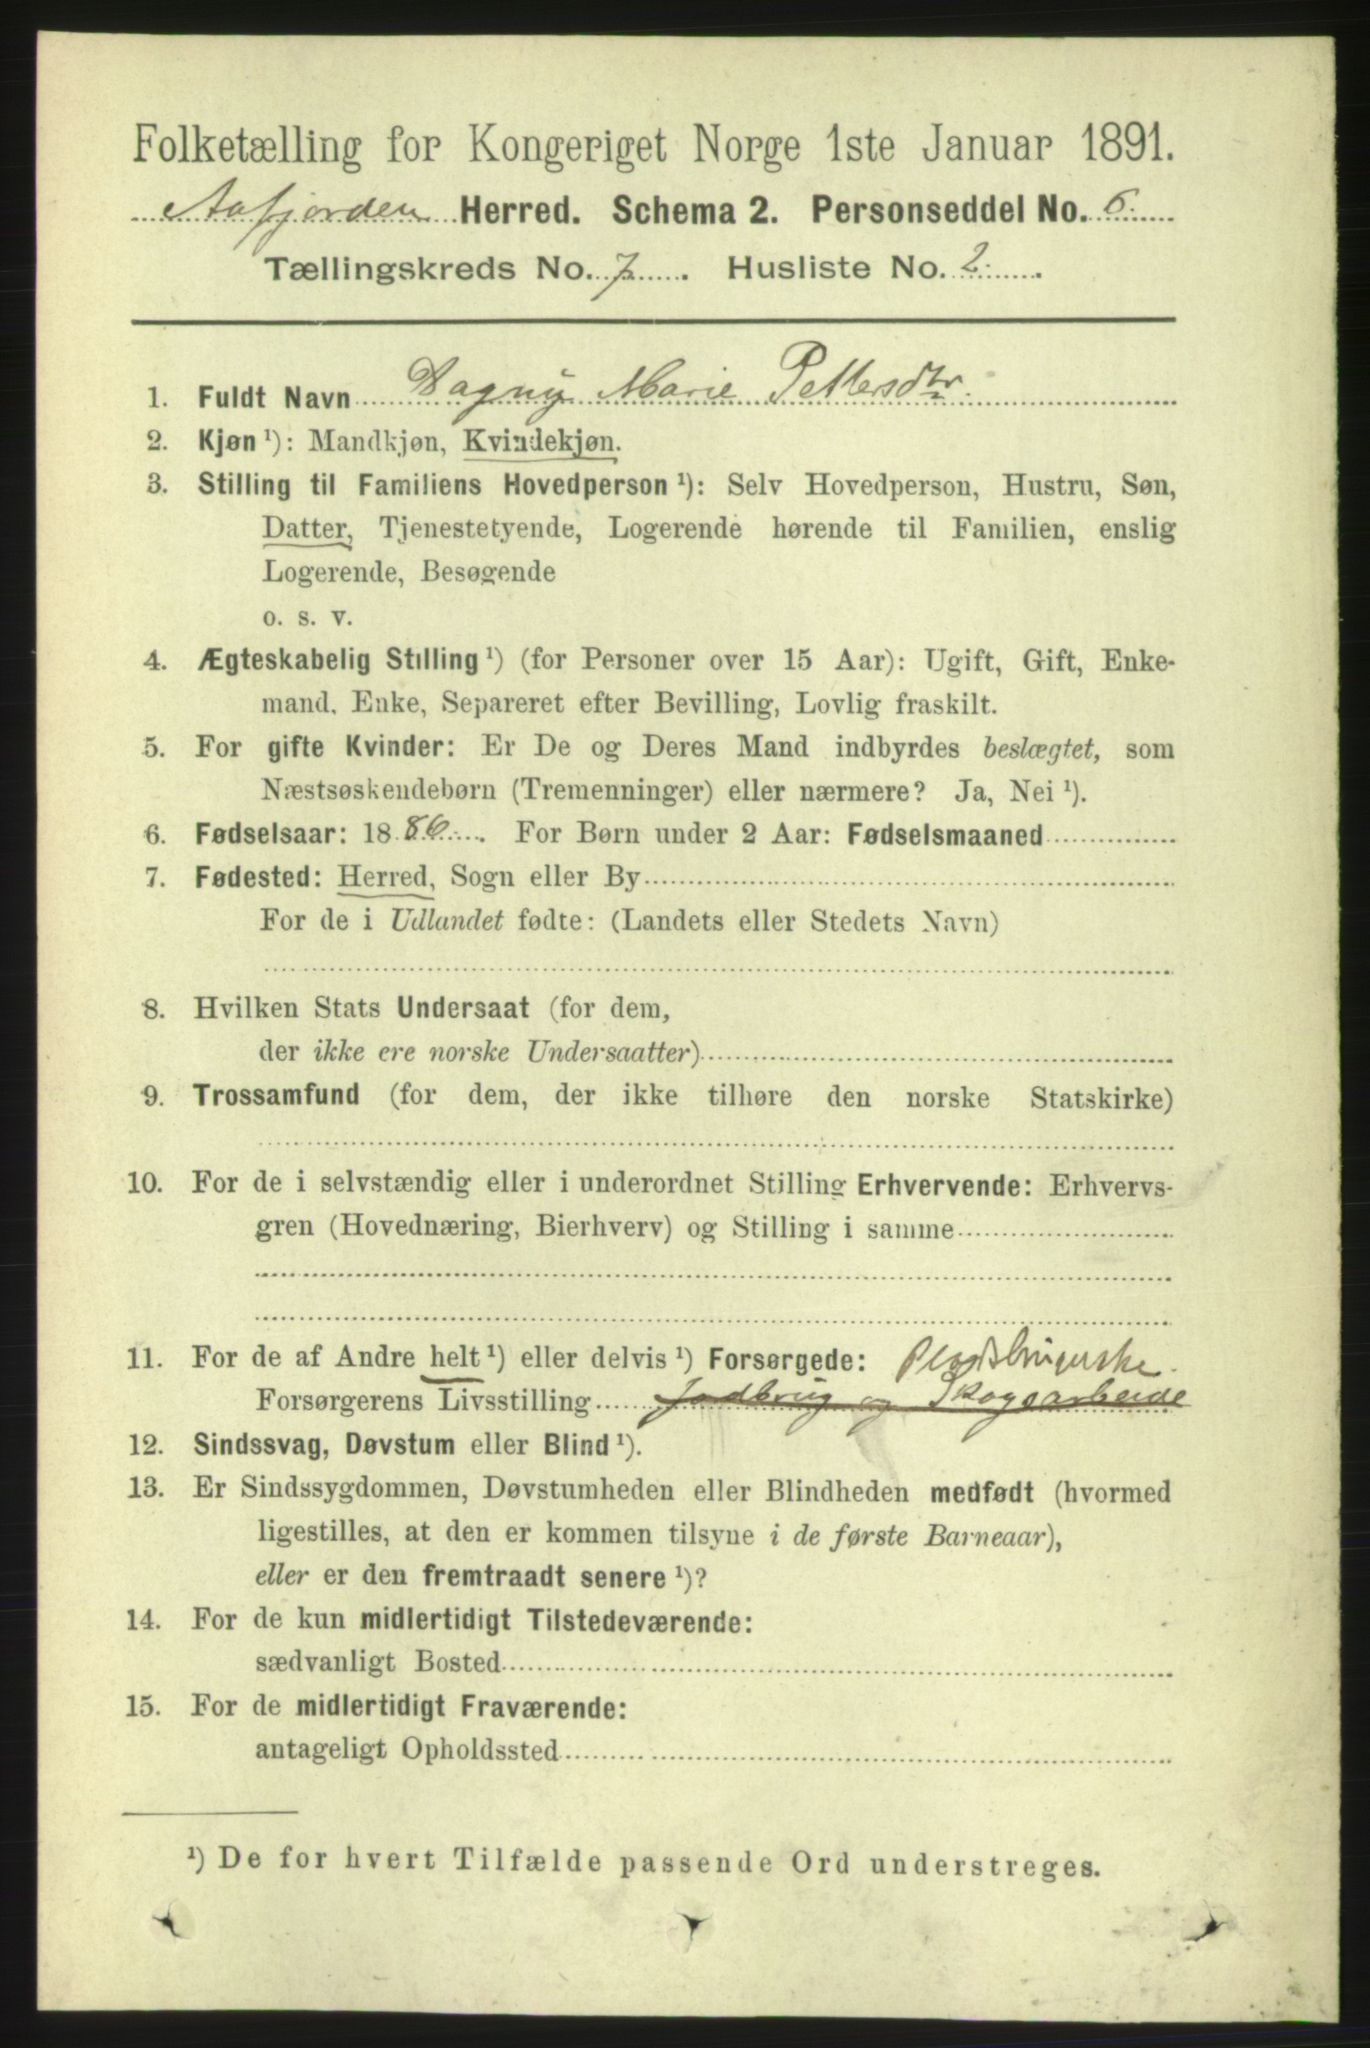 Folketælling for Kongeriget Norge 1ste Januar 1891.
Aafjorden Herred. Schema 2. Personseddel No. 6.
Tællingskreds No. 7. Husliste No. 2.
1. Fuldt Navn Dagny Marie Pettersdtr.
2. Kjøn ¹): Mandkjøn, Kvindekjøn.
3. Stilling til Familiens Hovedperson ¹): Selv Hovedperson, Hustru, Søn,
Datter, Tjenestetyende, Logerende hørende til Familien, enslig
Logerende, Besøgende
o. s. v.
4. Ægteskabelig Stilling ¹) (for Personer over 15 Aar): Ugift, Gift, Enke-
mand, Enke, Separeret efter Bevilling, Lovlig fraskilt.
5. For gifte Kvinder: Er De og Deres Mand indbyrdes beslægtet, som
Næstsøskendebørn (Tremenninger) eller nærmere? Ja, Nei ¹).
6. Fødselsaar: 1886. For Børn under 2 Aar: Fødselsmaaned
7. Fødested: Herred, Sogn eller By
For de i Udlandet fødte: (Landets eller Stedets Navn)
8. Hvilken Stats Undersaat (for dem,
der ikke ere norske Undersaatter)
9. Trossamfund (for dem, der ikke tilhøre den norske Statskirke)
10. For de i selvstændig eller i underordnet Stilling Erhvervende: Erhvervs-
gren (Hovednæring, Bierhverv) og Stilling i samme
11. For de af Andre helt ¹) eller delvis ¹) Forsørgede:
Forsørgerens Livsstilling Jordbrug og Skogsarbeide
12. Sindssvag, Døvstum eller Blind ¹).
13. Er Sindssygdommen, Døvstumheden eller Blindheden medfødt (hvormed
ligestilles, at den er kommen tilsyne i de første Barneaar),
eller er den fremtraadt senere ¹)?
14. For de kun midlertidigt Tilstedeværende:
sædvanligt Bosted
15. For de midlertidigt Fraværende:
antageligt Opholdssted
¹) De for hvert Tilfælde passende Ord understreges.